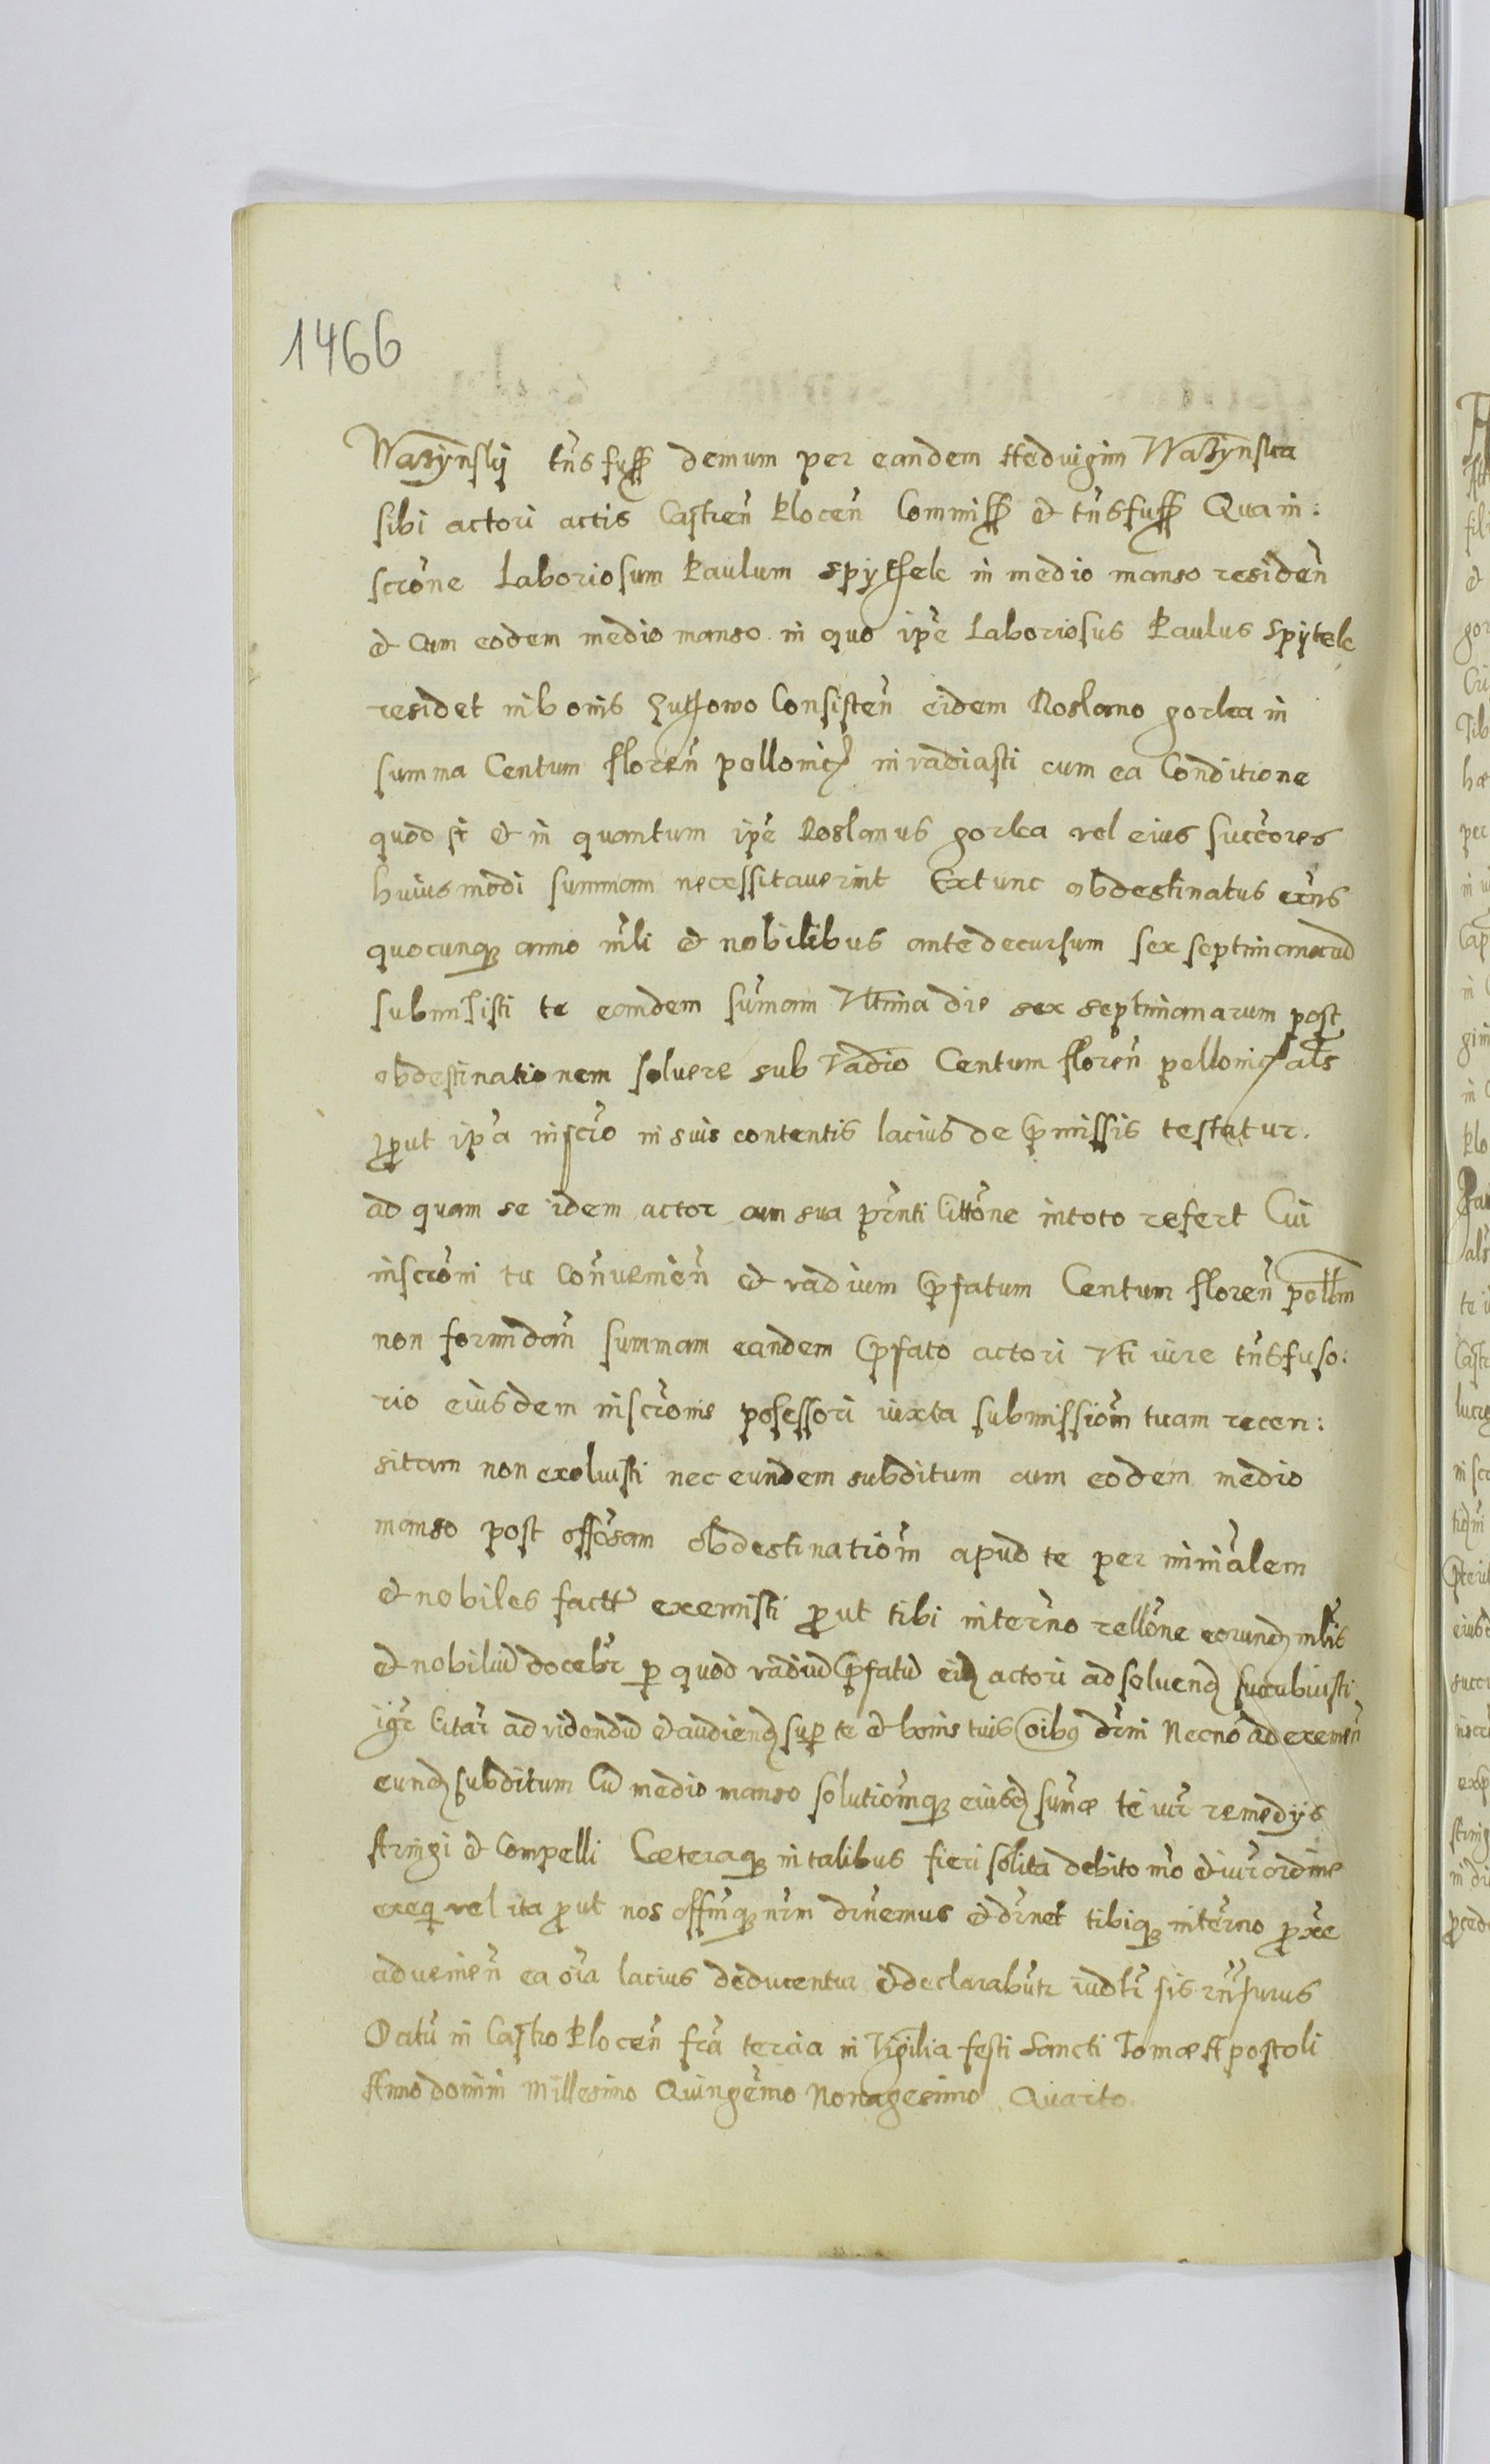 1466
Wazÿnskÿ tn̄sfuss̄ demum per eandem Hedvigim Wazÿnska
sibi actori actis Castren̄ Plocen̄ Commiss̄ et tn̄sfuss̄ Qua in:
scrōne Laboriosum Paulum Spÿthek in medio manso residen̄
et cum eodem medio manso in quo ip̄e Laboriosus Paulus Spÿtek
residet in bonis Consisten̄ eidem Roslano gorka in
summa Centum floren̄ pollonic̄ invadiasti cum ea Conditione
quod si et in quantum ip̄e Roslanus gorka vel eius succ̄ores
huiusmodi summam necessitaverint Extunc obdestinatus
quocunq; anno mīli et nobilibus ante decursum sex septimanarū
submisisti te eandem sum̄am Vltima die sex septimanarum post
obdestinationem solvere sub vadio Centum floren̄ pollonic̄ al̄s
prout ip̄a inscr̄o in suis contentis lacius de p̄missis testatur.
ad quam se idem actor cum sua pr̄nti Citt̄one in toto refert Cui
inscrōni tu Con̄venien̄ et vadium p̄fatum Centum floren̄ poll̄m
non formidan̄ summam eandem p̄fato actori vti iure tn̄sfuso:
rio eiusdem inscrōnis possessori iuxta submissiōm tuam recen:
sitam non exolvisti nec eundem subditum cum eodem medio
manso post obdestinatiōm apud te per mīnr̄alem
et nobiles factt̄ exemisti prout tibi in ter̄no rell̄one eorund; mlīs
et nobiliū doceb̄r p quod vadiū p̄fatū eid; actori ad solvend; succubuisti
igr̄ Citar̄ ad videndū et audiend; sup̄ te et bonis tuis oib; dr̄ni Necnō ad exemen̄
eund; subditum Cū medio manso solutiōmq; eiusd; sum̄æ te iur̄ remedÿs
stringi et Compelli Cæteraq; in talibus fieri solita debito mō et iur̄ ordine
exeq̄ vel ita prout nos offm̄q; nr̄m dr̄nemus et dr̄net tibiq; in ter̄no pr̄xe
advenien̄ ea oīa lacius deducentur et declarabūtr iudl̄r sis rn̄surus
Datū in Castro Plocen̄ fr̄a tercia in Vigilia festi Sancti Tomæ Apostoli
Anno domini Millesimo Quingēmo Nonagesimo Quarto